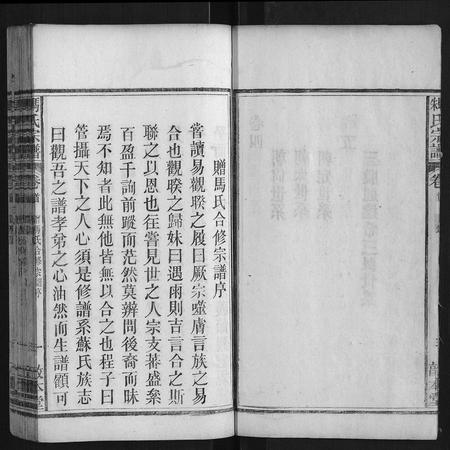 馮氏宗譜
卷
贈馮氏合修宗譜序
嘗讀易觀睽之履曰厥宗噬膚言族之易
合也觀睽之歸妹曰遇雨則吉言合之斯
聯之以恩也往嘗見世之人宗支蕃盛枀
百盈千詢前蹤而茫然莫辨問後裔而昧
焉不知者此無他皆無以合之也程子曰
管攝天下之人心須是修譜系蘇氏族志
曰觀吾之譜孝弟之心油然而生譜顧可
馮氏宗譜
卷首
贈馮氏合修宗譜序
一
敦本堂